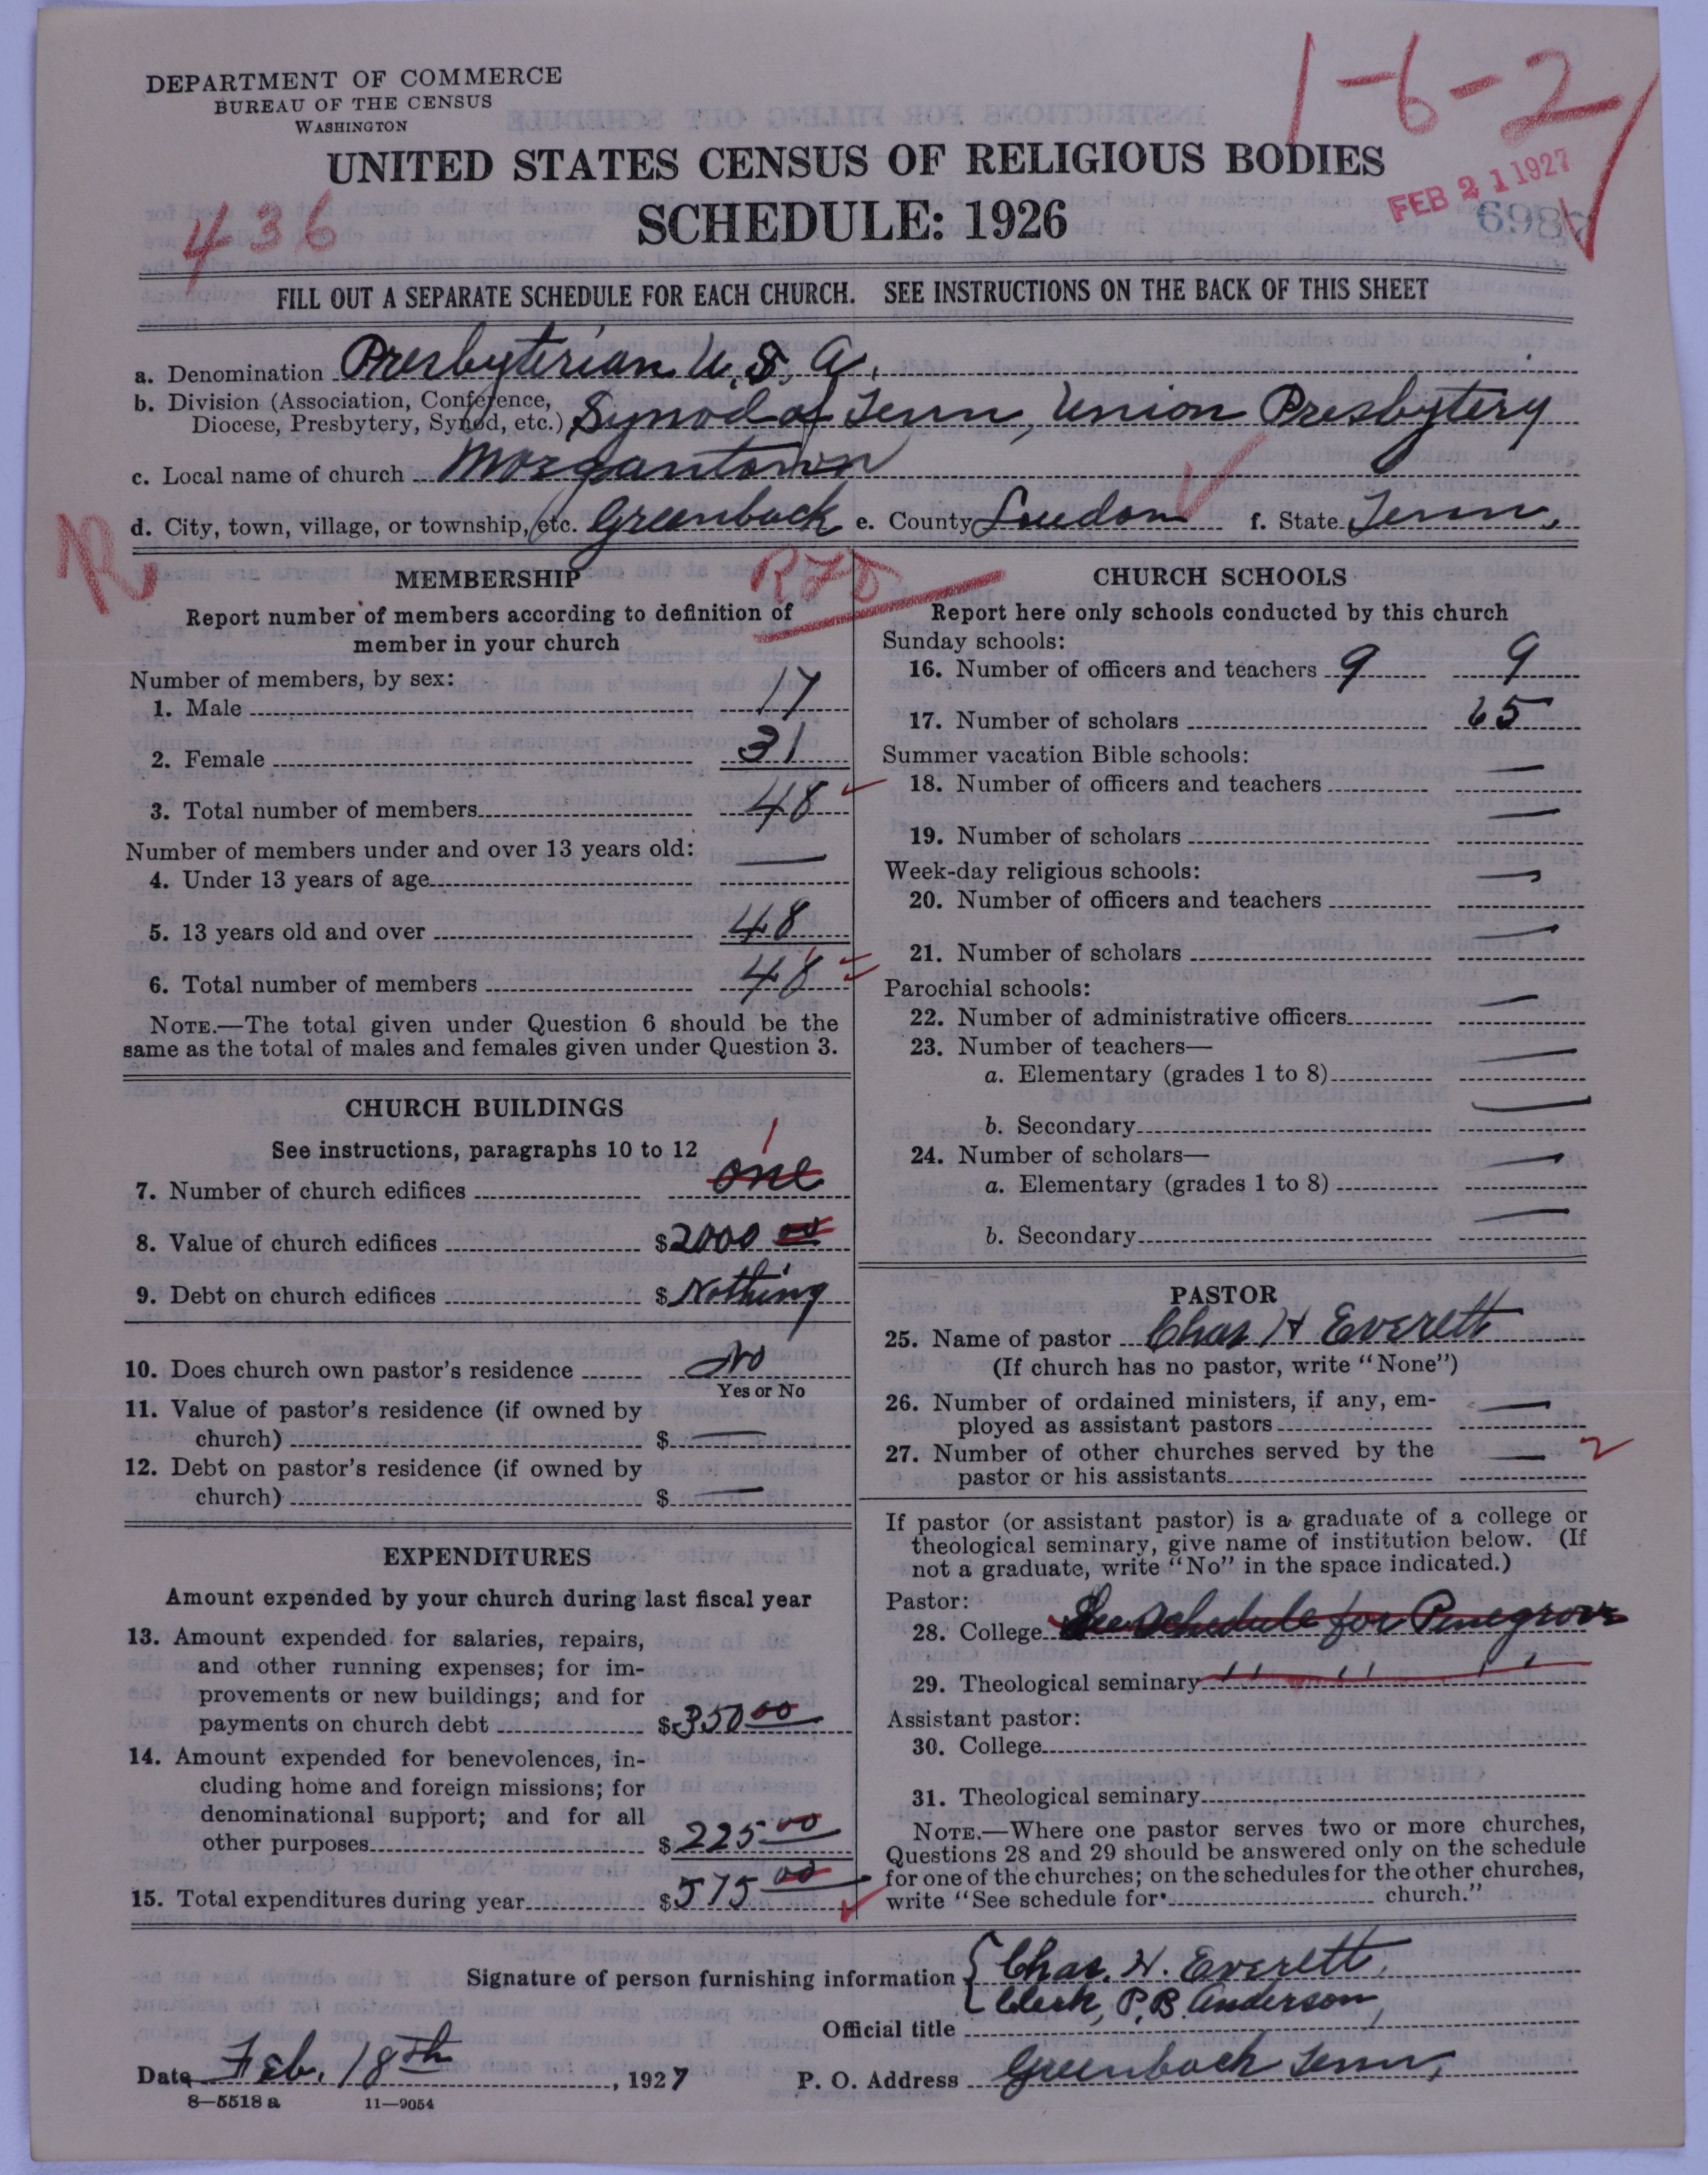 DEPARTMENT OF COMMERCE
BUREAU OF THE CENSUS
WASHINGTON
1-6-2
UNITED STATES CENSUS OF RELIGIOUS BODIES
FEB 21 1927
436
SCHEDULE: 1926
FILL OUT A SEPARATE SCHEDULE FOR EACH CHURCH. SEE INSTRUCTIONS ON THE BACK OF THIS SHEET
a. Denomination Presbyterian U.S.A.
b. Division (Association, Conference, Diocese, Presbytery, Synod, etc.) Synod of Tenn, Union Presbytery
c. Local name of church Morgantown
d. City, town, village, or township, etc. Greenback e. County Loudon f. State Tenn.
R
RFD
MEMBERSHIP
Report number of members according to definition of
member in your church
Number of members, by sex:
1. Male 17
2. Female 31
3. Total number of members 48
Number of members under and over 13 years old:
4. Under 13 years of age —
5. 13 years old and over 48
6. Total number of members 48
NOTE.—The total given under Question 6 should be the
same as the total of males and females given under Question 3.
CHURCH BUILDINGS
See instructions, paragraphs 10 to 12
1
7. Number of church edifices one
8. Value of church edifices $2000 00
9. Debt on church edifices $ Nothing
10. Does church own pastor's residence No
Yes or No
11. Value of pastor's residence (if owned by
church) $ —
12. Debt on pastor's residence (if owned by
church) $ —
EXPENDITURES
Amount expended by your church during last fiscal year
13. Amount expended for salaries, repairs,
and other running expenses; for im-
provements or new buildings; and for
payments on church debt $350 00
14. Amount expended for benevolences, in-
cluding home and foreign missions; for
denominational support; and for all
other purposes $225 00
15. Total expenditures during year $575 00
CHURCH SCHOOLS
Report here only schools conducted by this church
Sunday schools:
16. Number of officers and teachers 9 9
17. Number of scholars 65
Summer vacation Bible schools:
18. Number of officers and teachers —
19. Number of scholars —
Week-day religious schools:
20. Number of officers and teachers —
21. Number of scholars —
Parochial schools:
22. Number of administrative officers —
23. Number of teachers—
a. Elementary (grades 1 to 8) —
b. Secondary —
24. Number of scholars—
a. Elementary (grades 1 to 8) —
b. Secondary —
PASTOR
25. Name of pastor Chas H Everett
(If church has no pastor, write "None")
26. Number of ordained ministers, if any, em-
ployed as assistant pastors —
27. Number of other churches served by the
pastor or his assistants — 2
If pastor (or assistant pastor) is a graduate of a college or
theological seminary, give name of institution below. (If
not a graduate, write "No" in the space indicated.)
Pastor:
28. College See Schedule for Pinegrove
29. Theological seminary " " " "
Assistant pastor:
30. College
31. Theological seminary
NOTE.—Where one pastor serves two or more churches,
Questions 28 and 29 should be answered only on the schedule
for one of the churches; on the schedules for the other churches,
write "See schedule for church."
Signature of person furnishing information { Chas. H. Everett,
Clerk, P. B. Anderson,
Official title
Date Feb. 18th, 1927 P. O. Address Greenback Tenn,
8—5518 a 11—9054